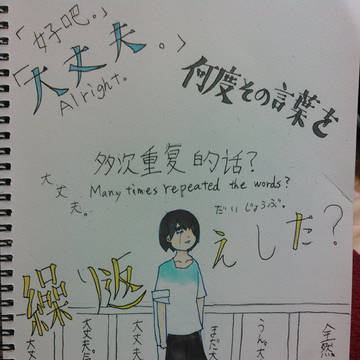 「好吧。」
「大丈夫。」
Alright.
何度その言葉を
多次重复的话?
大丈夫。
Many times repeated the words?
だいじょうぶ。
繰り返えした?
大丈
大丈夫
大丈夫
まだ大
うん。
全然